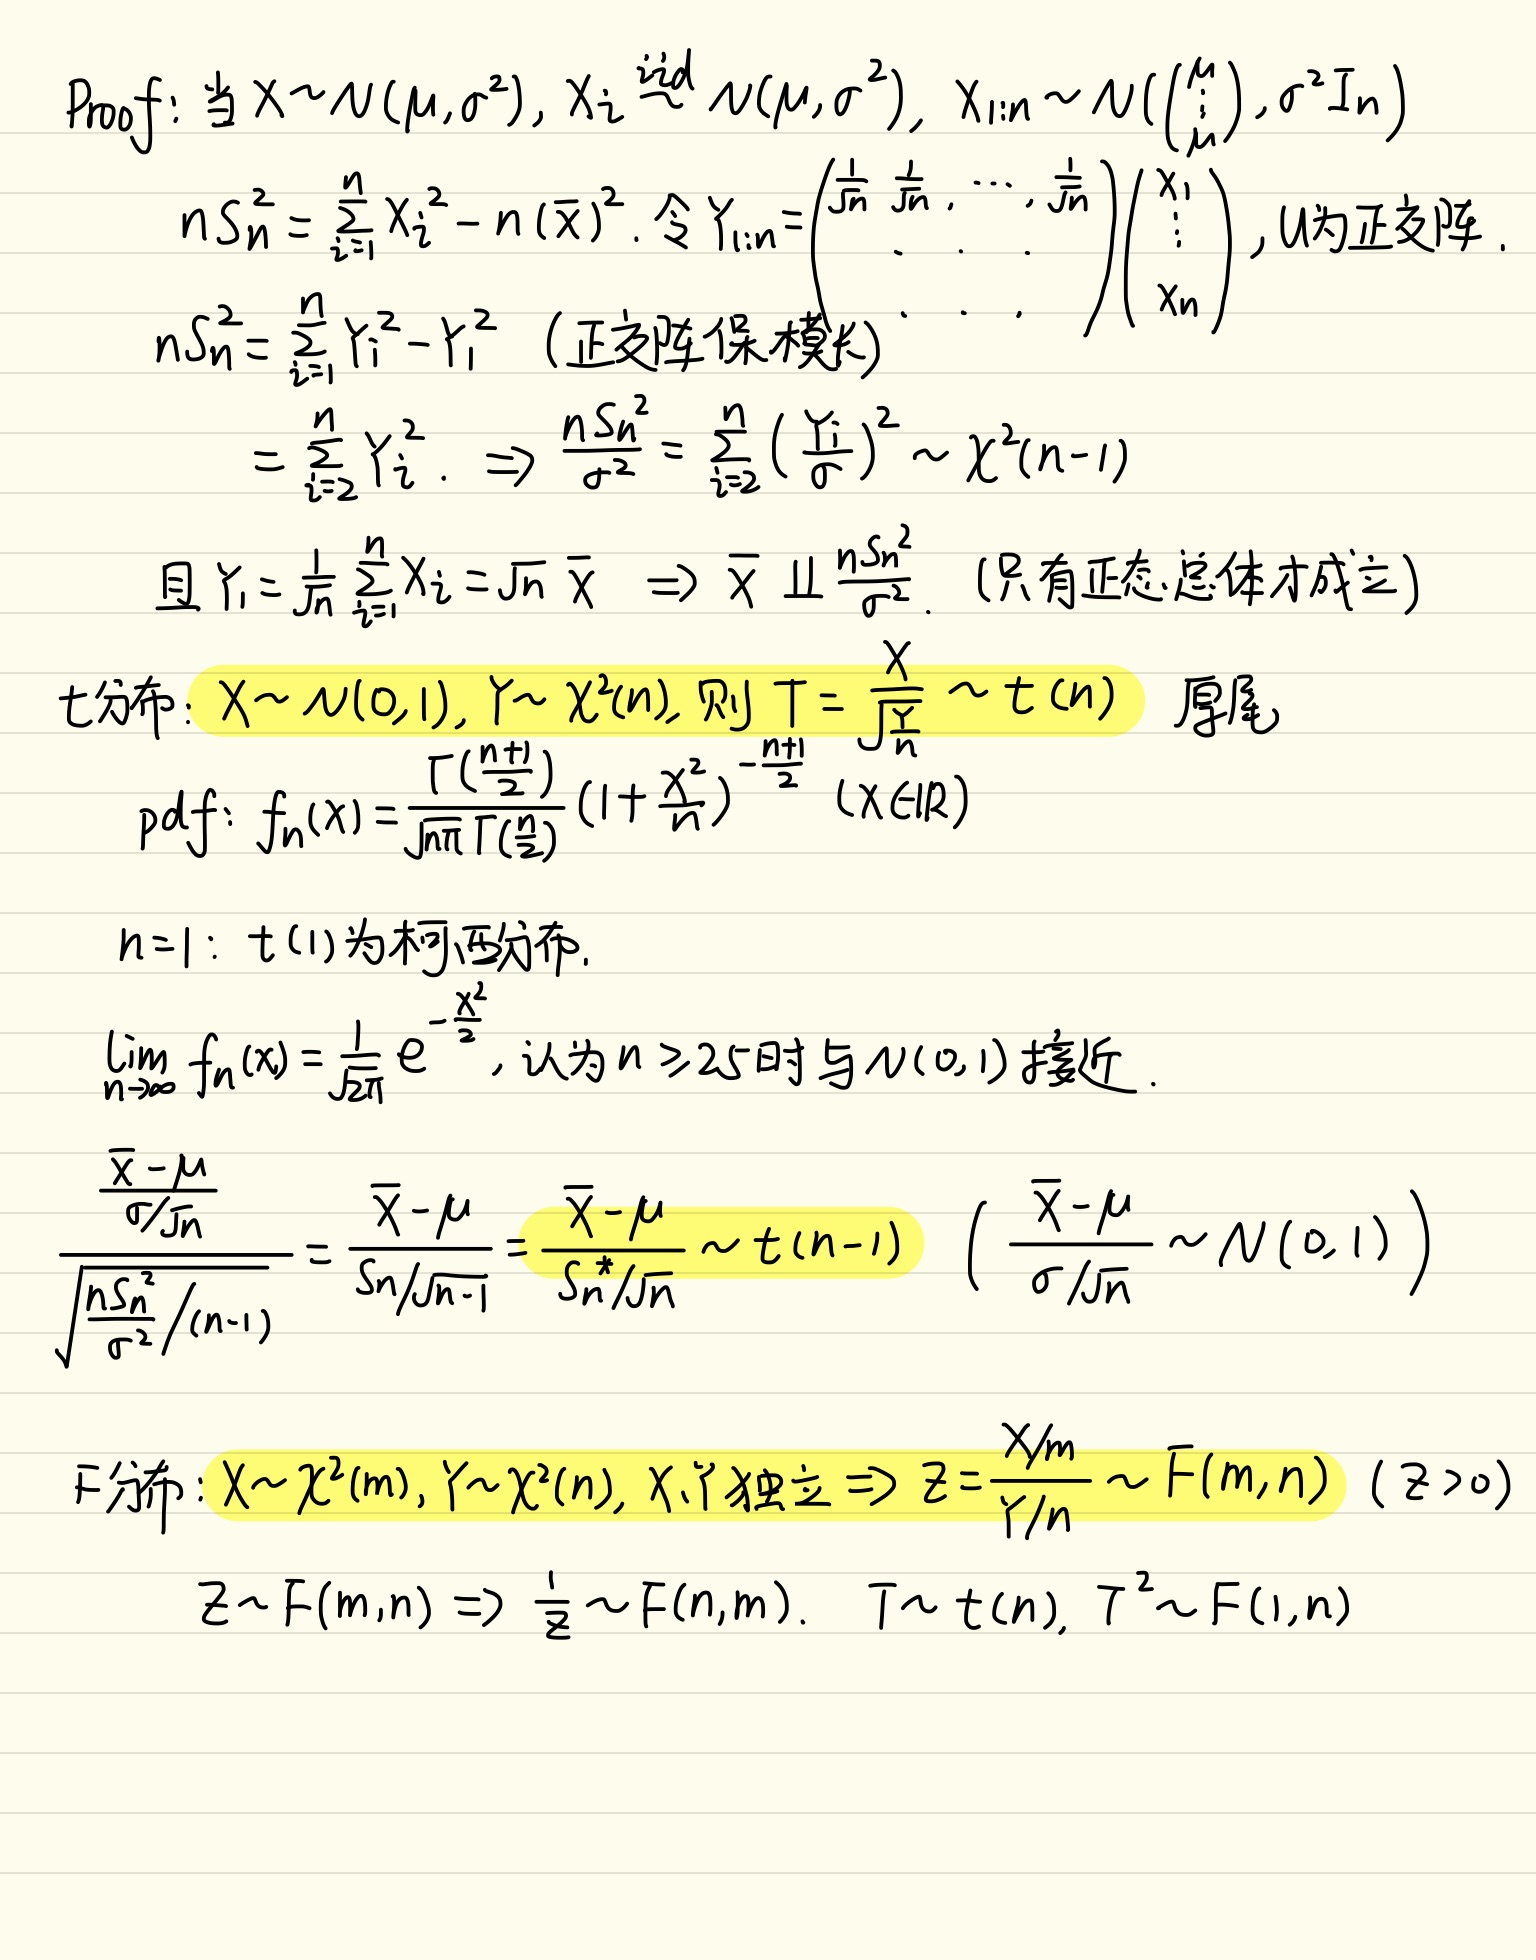 Proof: 当 X ~ N(μ, σ²), Xᵢ ~^{iid} N(μ, σ²), X_{1:n} ~ N((μ ⋮ μ), σ² Iₙ)
nSₙ² = Σ_{i=1}^{n} Xᵢ² - n(x̄)². 令 Y_{1:n} = (1/√n 1/√n, ⋯, 1/√n · · · · · ·)(X₁ ⋮ Xₙ), U为正交阵.
nSₙ² = Σ_{i=1}^{n} Yᵢ² - Y₁² (正交阵保模长)
= Σ_{i=2}^{n} Yᵢ². ⇒ nSₙ²/σ² = Σ_{i=2}^{n} (Yᵢ/σ)² ~ χ²(n-1)
且 Y₁ = 1/√n Σ_{i=1}^{n} Xᵢ = √n X̄ ⇒ X̄ ⫫ nSₙ²/σ². (只有正态总体才成立)
t分布: X ~ N(0,1), Y ~ χ²(n), 则 T = X/√(Y/n) ~ t(n) 厚尾
pdf: fₙ(x) = Γ((n+1)/2)/(√nπ Γ(n/2)) (1 + x²/n)^{-(n+1)/2} (x∈ℝ)
n=1: t(1)为柯西分布.
lim_{n→∞} fₙ(x) = 1/√2π e^{-x²/2}, 认为 n ≥ 25时与 N(0,1) 接近.
((X̄-μ)/(σ/√n)) / √((nSₙ²/σ²)/(n-1)) = (X̄-μ)/(Sₙ/√n-1) = (X̄-μ)/(Sₙ*/√n) ~ t(n-1) ((X̄-μ)/(σ/√n) ~ N(0,1))
F分布: X ~ χ²(m), Y ~ χ²(n), X、Y独立 ⇒ Z = (X/m)/(Y/n) ~ F(m,n) (Z>0)
Z ~ F(m,n) ⇒ 1/Z ~ F(n,m). T ~ t(n), T² ~ F(1,n)